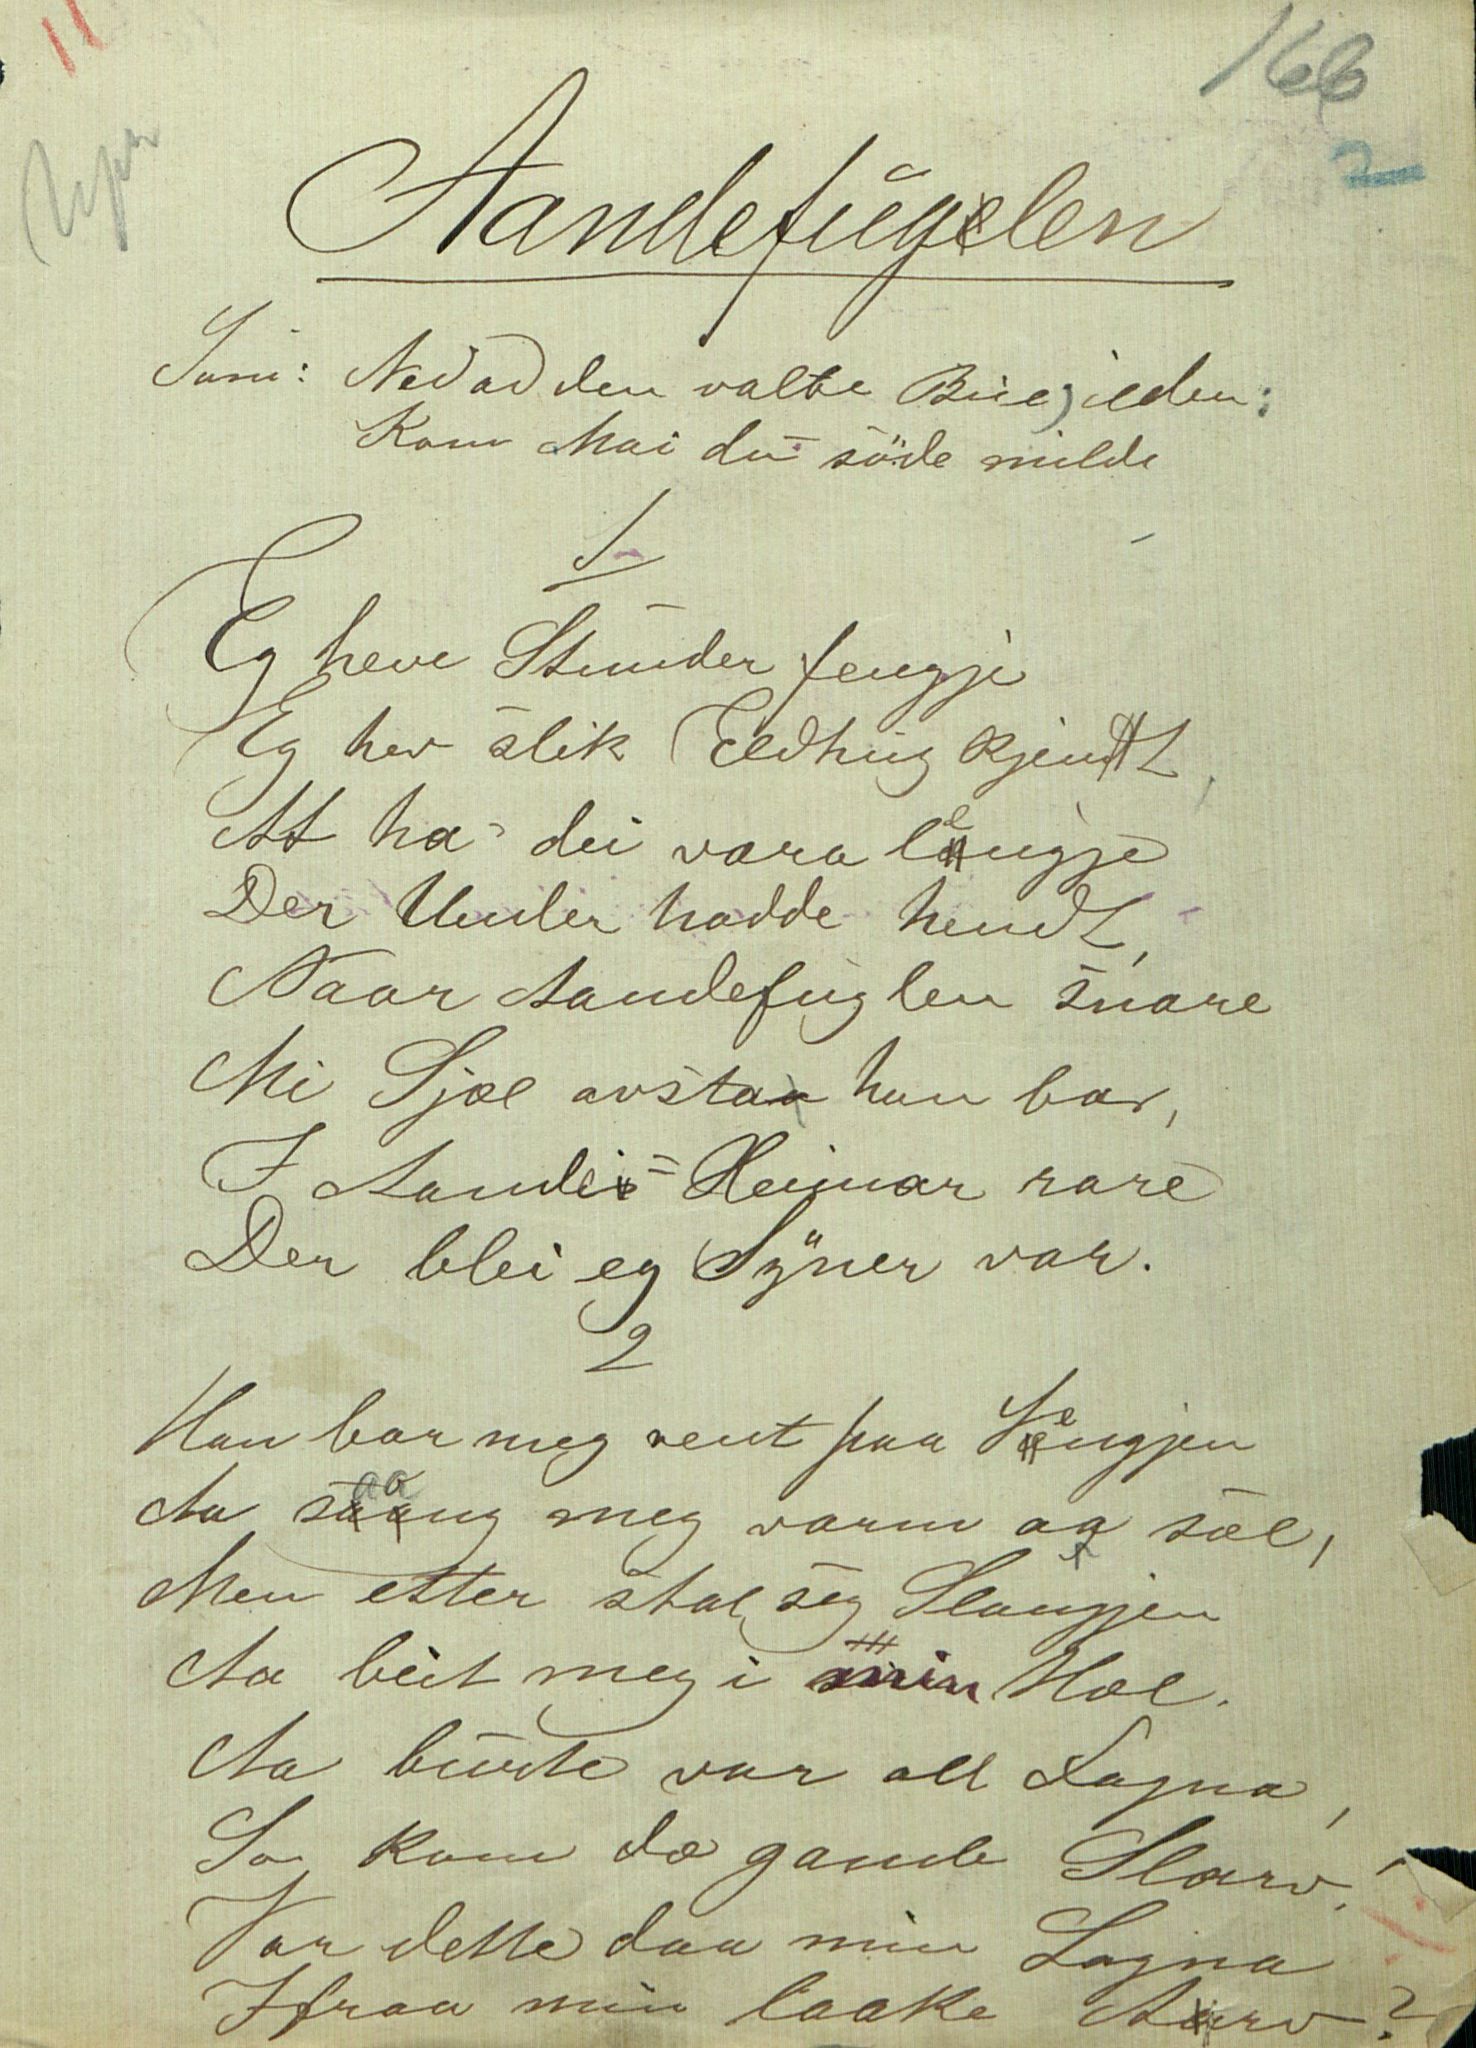 11
166
2
Aandefugelen
Tone: Ned ad den valte Bue, ilden:
Kom Mai du söde milde
1
Eg heve Stunder fengje
Eg hev slik Eldhug kjendt,
At ha dei vara lengje
Der Under hadde hendt,
Naar Aandefuglen snare
Mi Sjæl avsta han bar,
I Aande-Heimar rare
Der blei eg Syner var.
2
Han bar meg rent paa Vengjen
Aa saang meg varm aa sæl,
Men etter stal seg Slangjen
Aa beit meg i min Hæl.
Aa burte var all Fagna,
So kom dæ gamle Starv,
Var dette daa min Lagna
Ifraa min laake Arv?